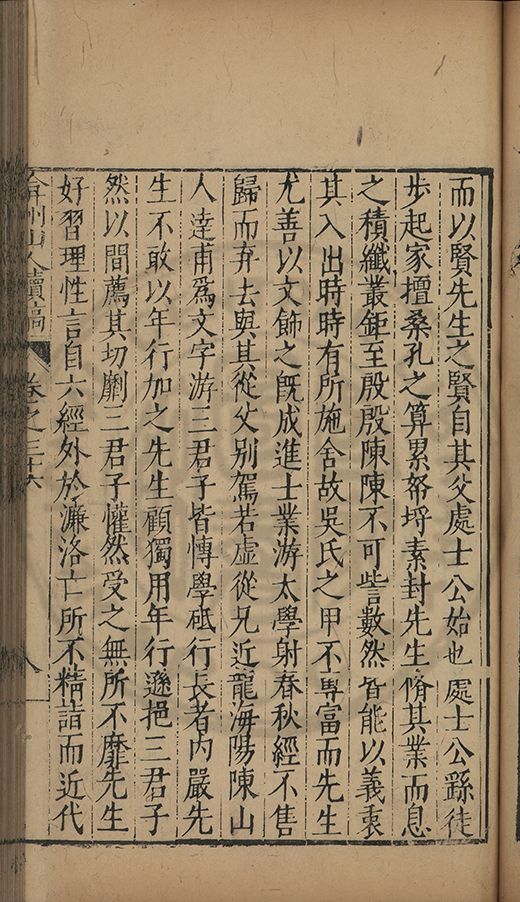 而以賢先生之賢自其父處士公始也處士公繇徒
步起家擅桑孔之算累帑埒素封先生脩其業而息
之積纖叢鉅至殷殷陳陳不可訾數然皆能以義裒
其入出時時有所施舍故吳氏之甲不專富而先生
尤善以文飾之旣成進士業游太學射春秋經不售
歸而弃去與其從父別駕若虛從兄近龍海陽陳山
人達甫爲文字游三君子皆愽學砥行長者內嚴先
生不敢以年行加之先生顧獨用年行遜挹三君子
然以間薦其切劘三君子懽然受之無所不靡先生
好習理性言自六經外於濂洛亡所不精詣而近代
弇州山人續稿 卷之三十六 八